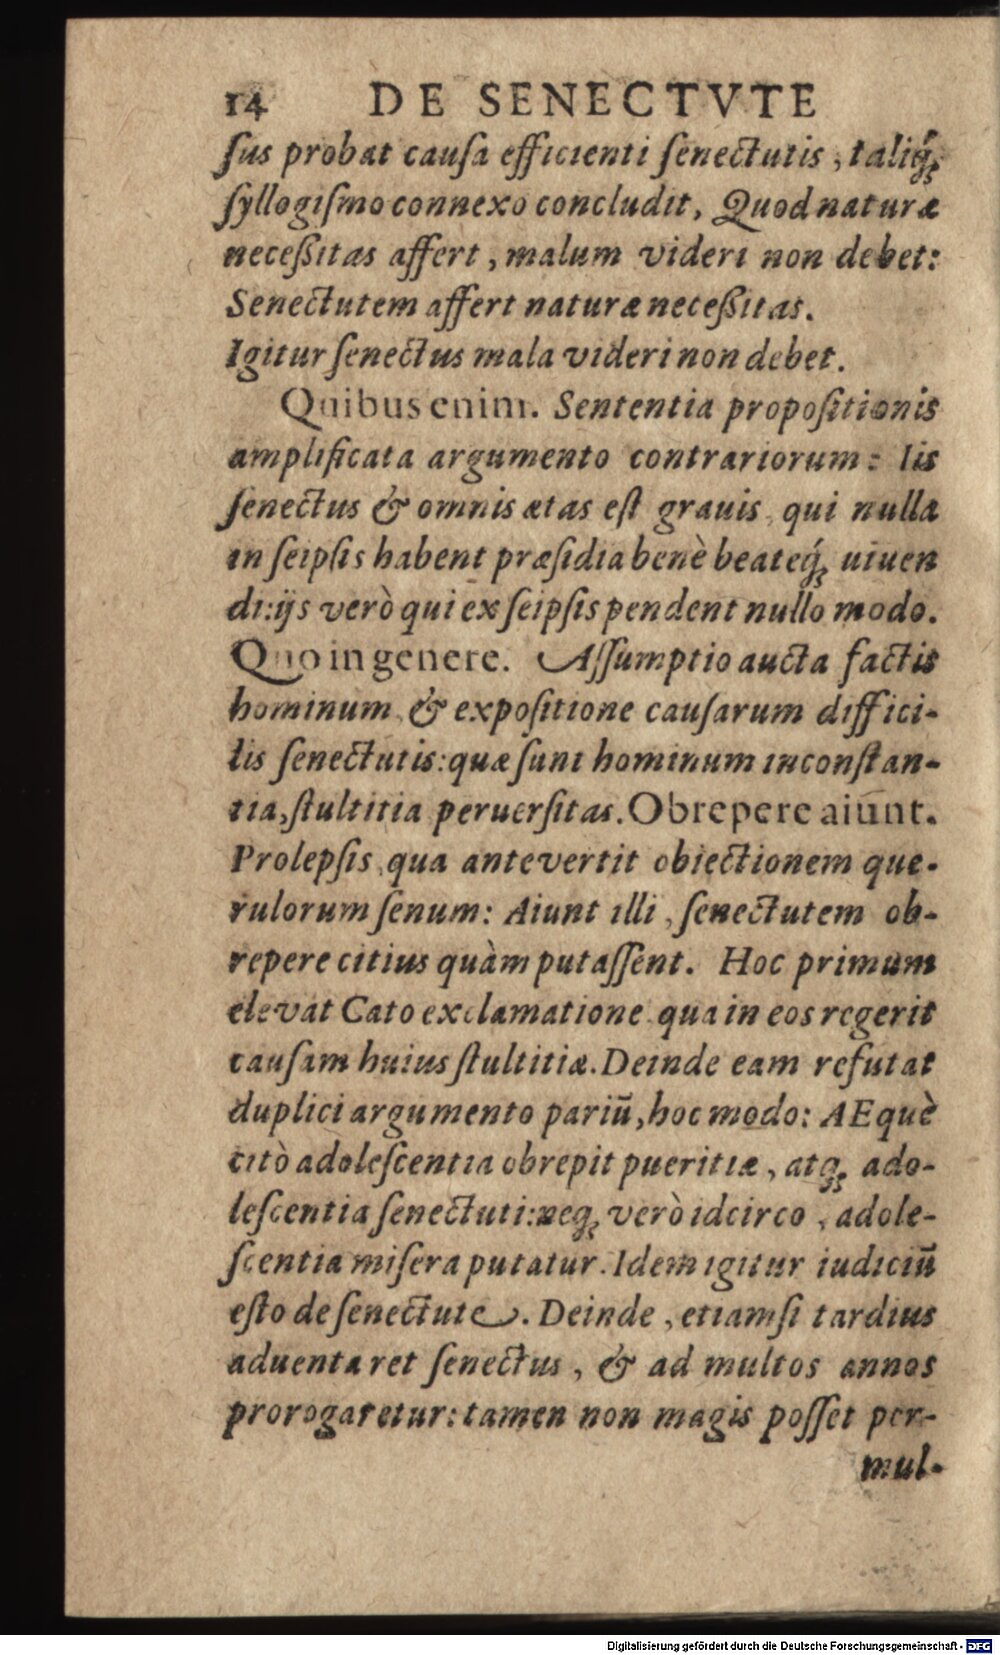 14 DE SENECTVTE
ſus probat cauſa efficienti ſenectutis, taliq́ꝫ
ſyllogiſmo connexo concludit, Quod naturæ
neceßitas affert, malum videri non debet:
Senectutem affert naturæ neceßitas.
Igitur ſenectus mala videri non debet.
Quibus enim. Sententia propoſitionis
amplificata argumento contrariorum: Iis
ſenectus & omnis ætas eſt grauis, qui nulla
in ſeipſis habent præſidia benè beateq́ꝫ uiuen
di: ijs verò qui ex ſeipſis pendent nullo modo.
Quo in genere. Aſſumptio aucta factis
hominum, & expoſitione cauſarum diffici-
lis ſenectutis: quæ ſunt hominum inconſtan-
tia, ſtultitia peruerſitas. Obrepere aiunt.
Prolepſis, qua antevertit obiectionem que-
rulorum ſenum: Aiunt illi, ſenectutem ob-
repere citius quàm putaſſent. Hoc primum
elevat Cato exclamatione qua in eos regerit
cauſam huius ſtultitiæ. Deinde eam refutat
duplici argumento pariū, hoc modo: AEquè
citò adoleſcentia obrepit pueritiæ, atqꝫ ado-
leſcentia ſenectuti: neqꝫ verò idcirco, adole-
ſcentia miſera putatur. Idem igitur iudiciū
eſto de ſenectute. Deinde, etiamſi tardius
aduentaret ſenectus, & ad multos annos
prorogaretur: tamen non magis poſſet per-
mul-
Digitalisierung gefördert durch die Deutsche Forschungsgemeinschaft - DFG